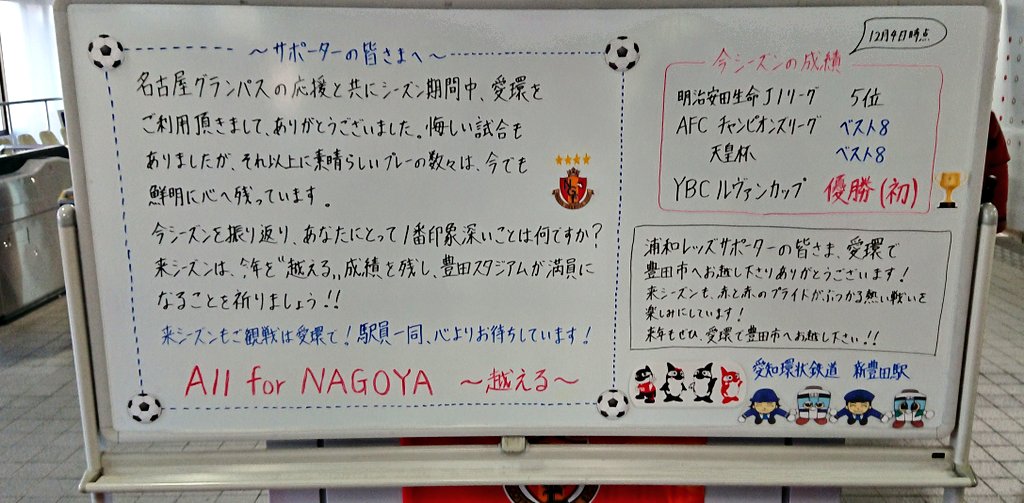 ～サポーターの皆さまへ～
名古屋グランパスの応援と共にシーズン期間中、愛環を
ご利用頂きまして、ありがとうございました。悔しい試合も
ありましたが、それ以上に素晴らしいプレーの数々は、今でも
鮮明に心へ残っています。
今シーズンを振り返り、あなたにとって1番印象深いことは何ですか?
来シーズンは、今年を"越える"成績を残し、豊田スタジアムが満員に
なることを祈りましょう!!
来シーズンもご観戦は愛環で!駅員一同、心よりお待ちしています!
All for NAGOYA ～越える～
12月4日時点
今シーズンの成績
明治安田生命J1リーグ 5位
AFC チャンピオンズリーグ ベスト8
天皇杯 ベスト8
YBCルヴァンカップ 優勝(初)
浦和レッズサポーターの皆さま、愛環で
豊田市へお越し下さりありがとうございます!
来シーズンも、赤と赤のプライドがぶつかる熱い戦いを
楽しみにしています!
来年もぜひ、愛環で豊田市へお越し下さい!!
愛知環状鉄道 新豊田駅